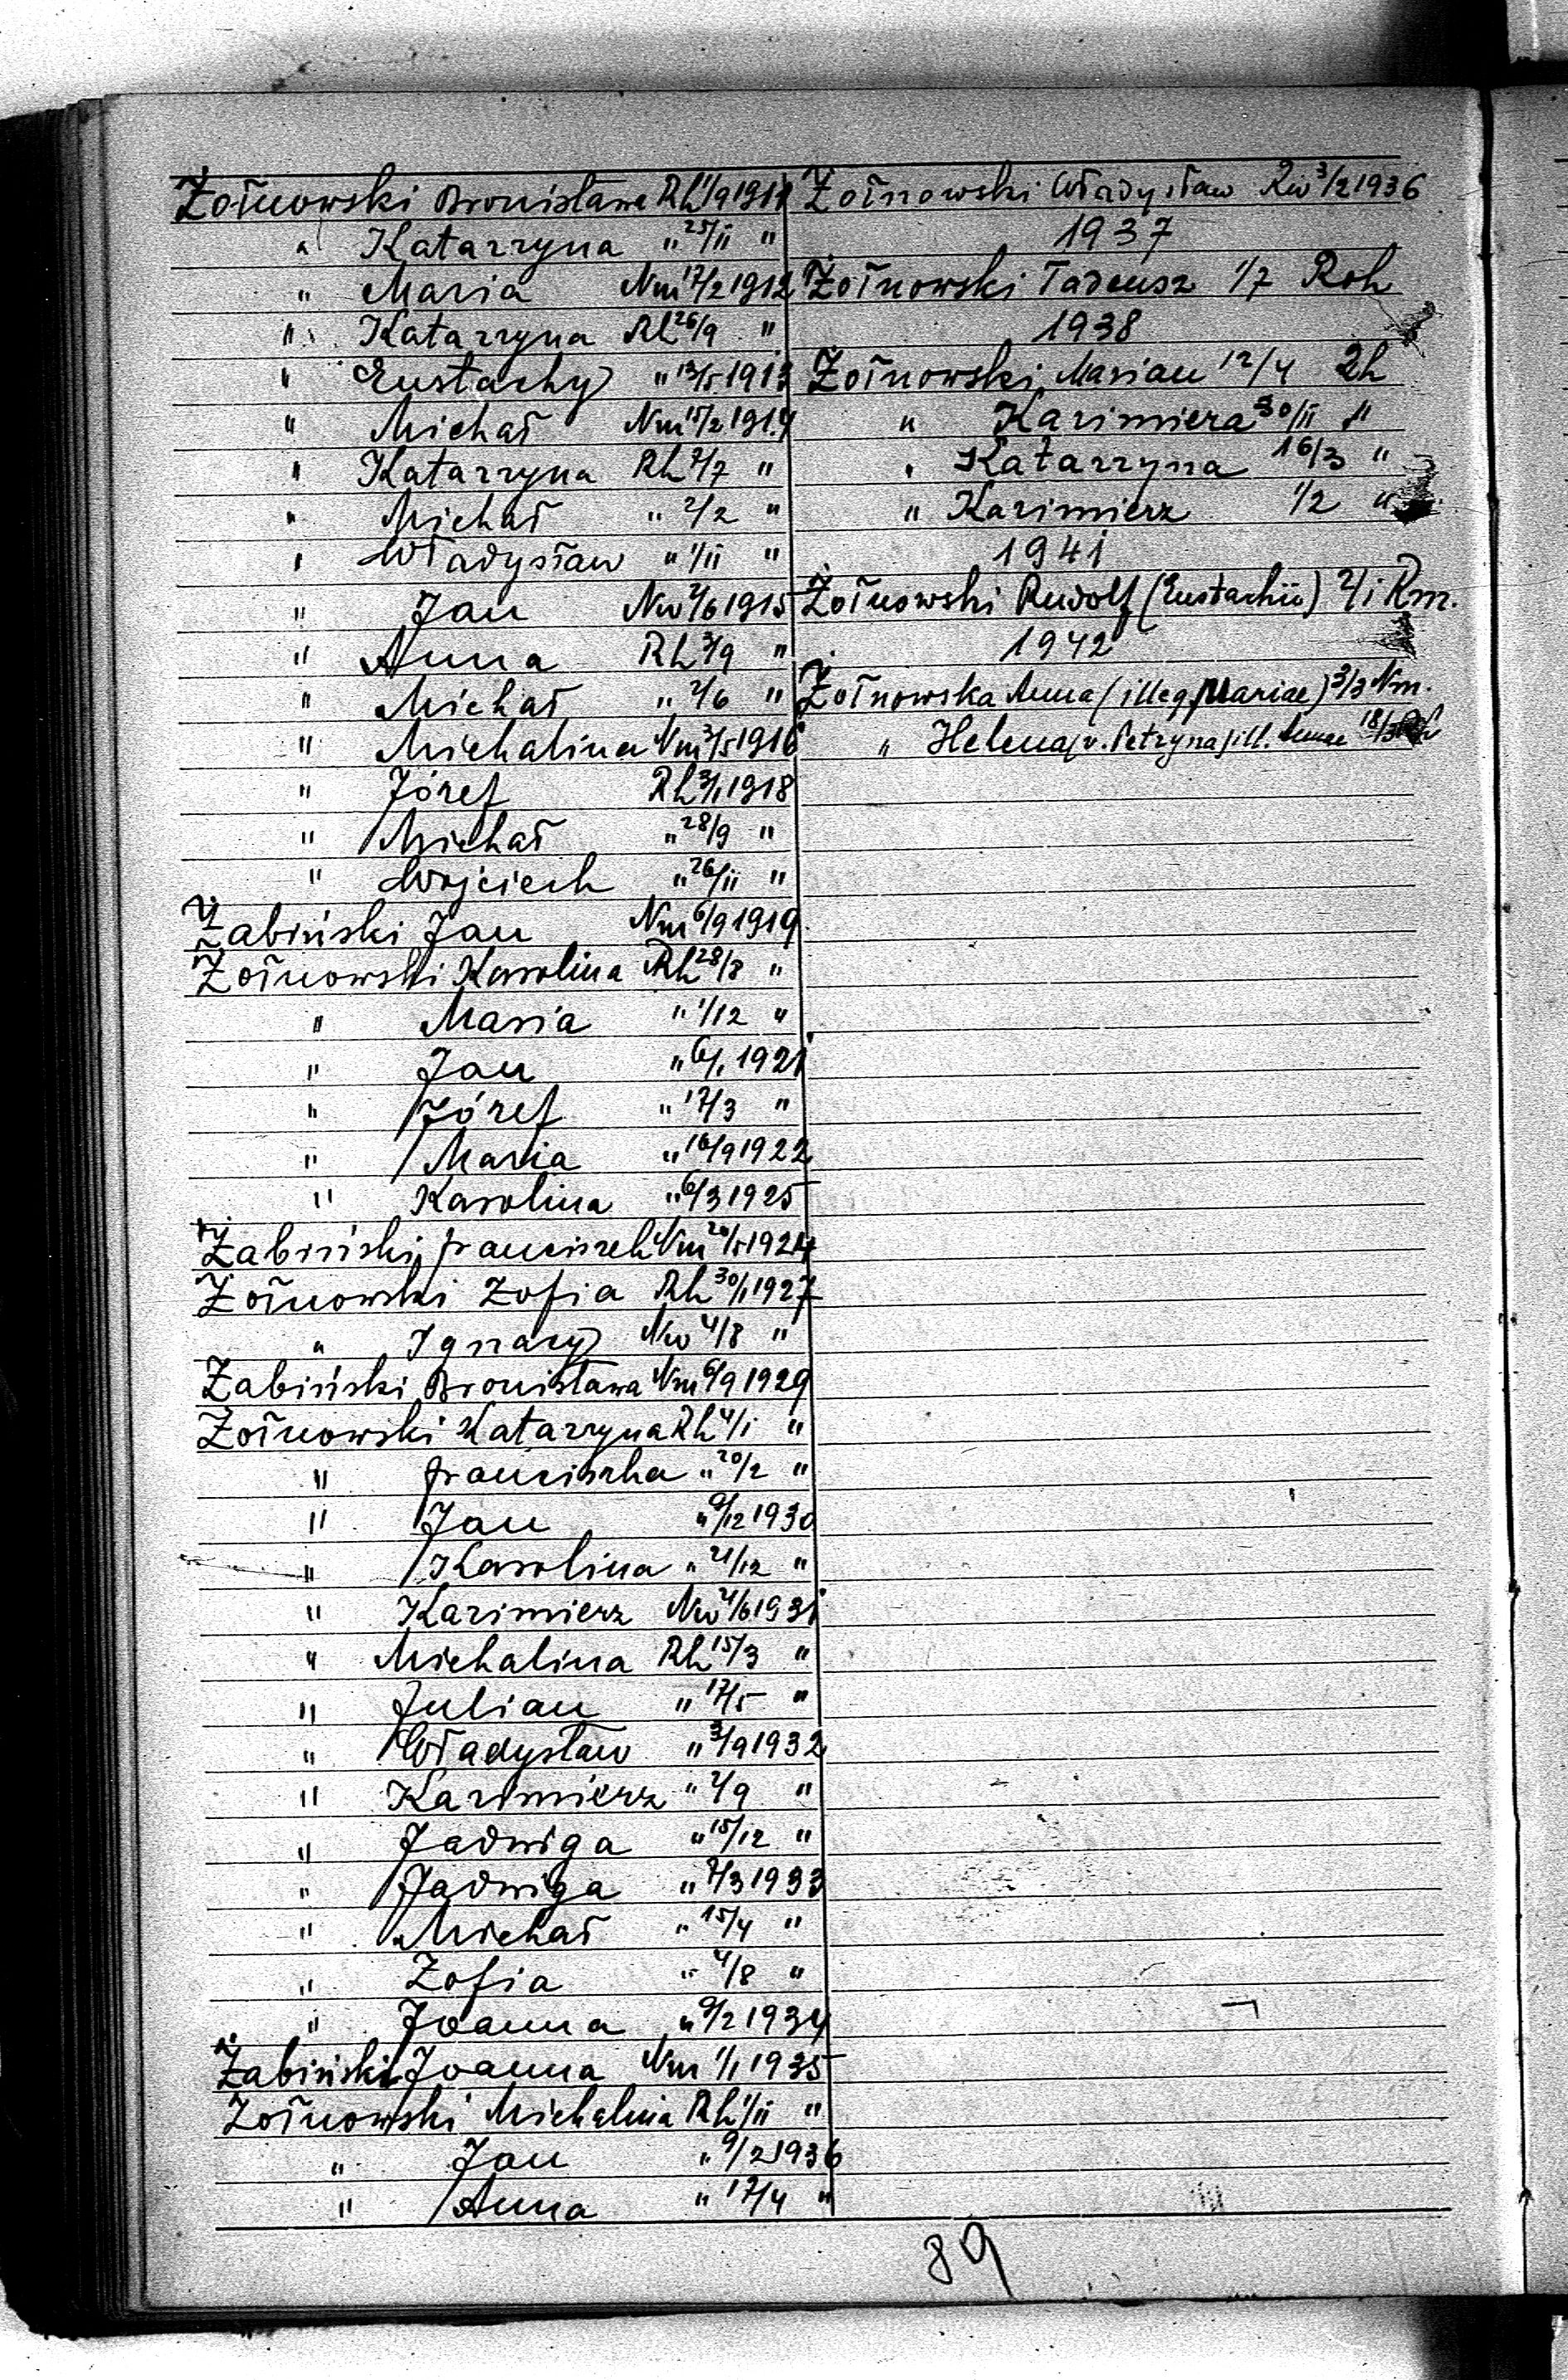 Żołnowski Bronisława Rh 1/9 1911
" Katarzyna " 25/II "
" Maria Nm 17/2 1912
" Katarzyna Rh 26/9 "
" Eustachy " 13/5 1913
" Michał Nm 15/2 1914
" Katarzyna Rh 7/7 "
" Michał " 2/2 "
" Władysław " 1/II "
" Jan Nw 2/6 1915
" Anna Rh 3/9 "
" Michał " 2/6 "
" Michalina Nm 3/5 1916
" Józef Rh 3/1 1918
" Michał " 28/9 "
" Wojciech " 26/II "
Żabiński Jan Nm 6/9 1919
Żołnowski Karolina Rh 28/8 "
" Maria " 1/12 "
" Jan " 6/1 1921
" Józef " 17/3 "
" Maria " 16/9 1922
" Karolina " 6/3 1925
Żabiński Franciszek Nm 20/5 1924
Żołnowski Zofia Rh 30/1 1927
" Ignacy Nw 4/8 "
Żabiński Bronisława Nm 6/9 1929
Żołnowski Katarzyna Rh 4/1 "
" Franciszka " 20/2 "
" Jan " 9/12 1930
" Karolina " 21/12 "
" Kazimierz Nw 4/6 1931
" Michalina Rh 15/3 "
" Julian " 17/5 "
" Władysław " 3/9 1932
" Kazimierz " 2/9 "
" Jadwiga " 15/12 "
" Jadwiga " 7/3 1933
" Michał " 15/4 "
" Zofia " 4/8 "
" Joanna " 9/2 1934
Żabiński Joanna Nm 1/1 1935
Żołnowski Michalina Rh 1/II "
" Jan " 9/2 1936
" Anna " 17/4 "
Żołnowski Władysław Rw 3/2 1936
1937
Żołnowski Tadeusz 1/7 Roh
1938
Żołnowski Marian 12/4 Rh
" Kazimiera 30/II "
" Katarzyna 16/3 "
" Kazimierz 1/2 "
1941
Żołnowski Rudolf (Eustachii) 2/1 Rm.
1942
Żołnowska Anna (illeg. Mariae) 3/3 Nm.
" Helena (v. Petryna) ill. Annae 18/3
89